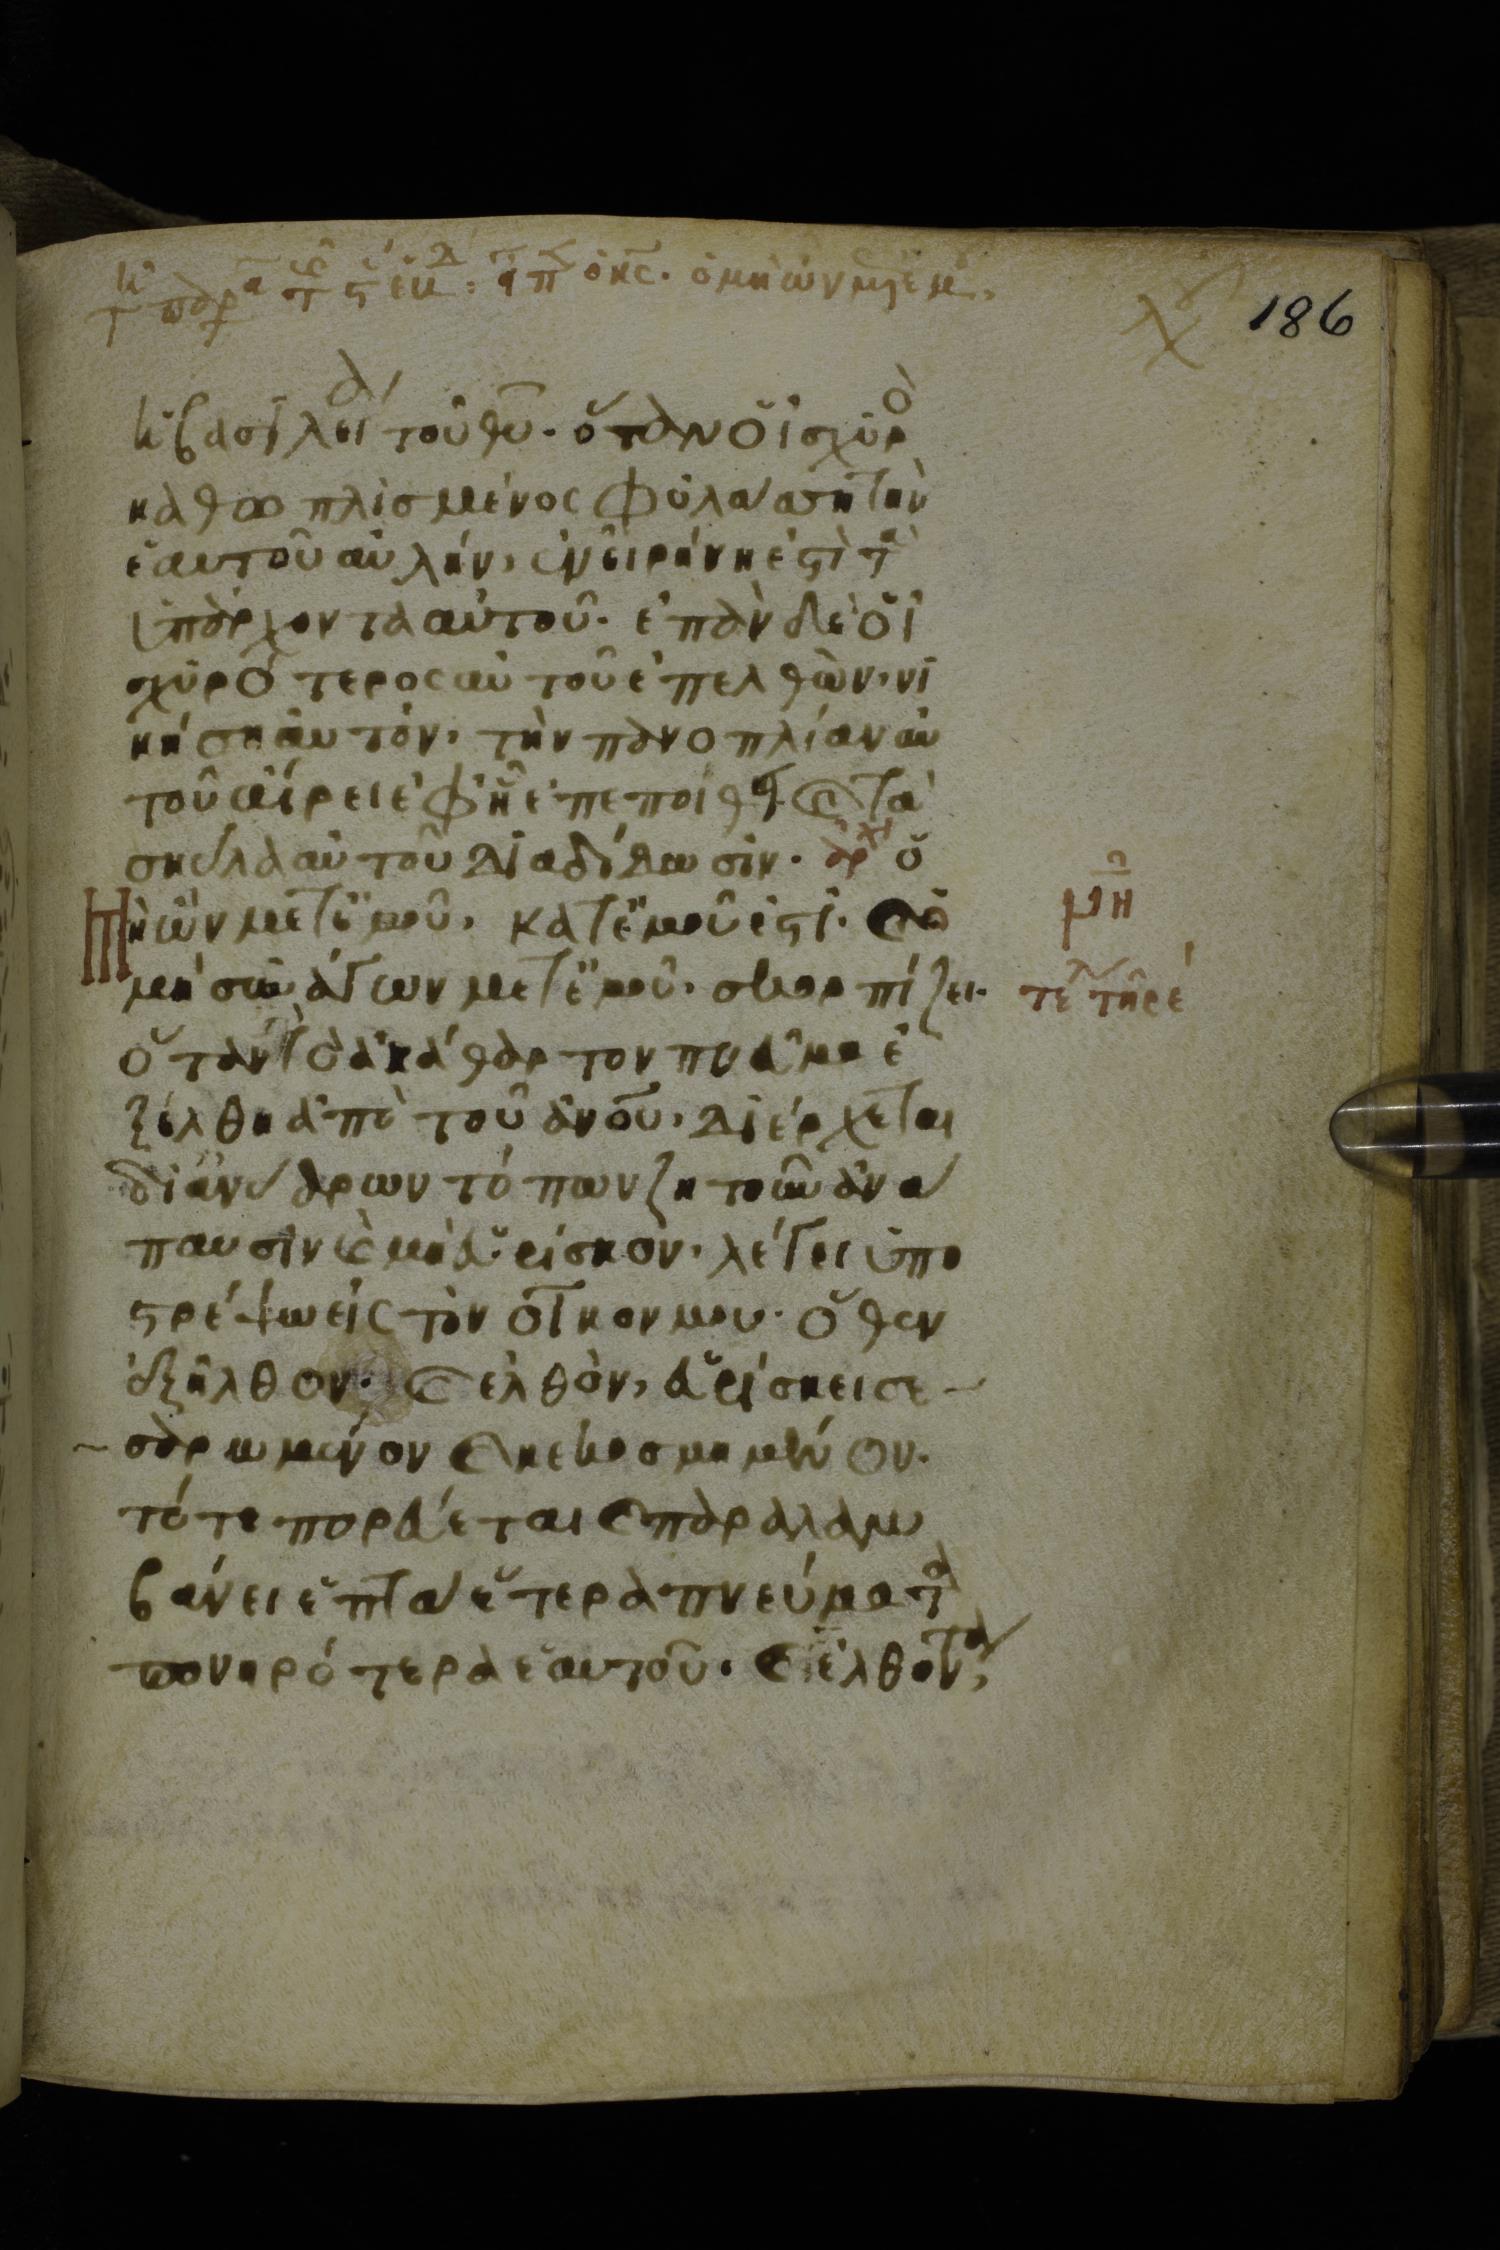 186
ἡ βασϊλεία τοῦ θυ. ὅταν ὁ ἰσχῦρὸ
καθοπλισμένος φυλάσση τὴν
ἑαυτοῦ αὐλὴν, ἐν εἰρήνη ἐστὶ τὰ
ὑπάρχοντα αὐτοῦ. ἐπὰν δὲ ὁ ἰ
σχῦρότερος αὐτοῦ ἐπελθὼν, νι
κήση αὐτόν, τὴν πανοπλίαν αὐ
τοῦ αἴρει ἐφ ἧ ἐπεποίθη. καὶ τὰ
σκύλα αὐτοῦ διαδίδωσιν. ἀρχ ὁ
μὴ ὢν μετ ἐμοῦ, κατ ἐμοῦ ἐστί. καὶ ὁ
μὴ συνάγων μετ ἐμοῦ. σκορπίζει.
ὅταν τὸ ἀκάθαρτον πνεῦμα ἐ
ξέλθη ἀπὸ τοῦ ἀνου, διέρχεται
δι ἀνύδρων τόπων ζητοῦν ἀνά
παυσιν καὶ μὴ εὑρίσκον, λέγει ὑπο
στρέψω εἰς τὸν οἶκον μου. ὅθεν
ἐξῆλθον. καὶ ἐλθὸν, εὑρίσκει σε
σαρωμένον καὶ κεκοσμημένον.
τότε πορεύεται καὶ παραλαμ
βάνει ἑπτὰ ἕτερα πνεύματα
πονηρότερα ἑαυτοῦ. καὶ εἰσελθόντα,
ρμη